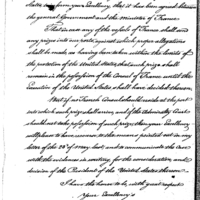 States and from your Excellency, that it has been agreed between
the general Government and the Minister of France
That in case any of the vessels of France shall send
any prizes into our ports, against which proper allegations
shall be made, as having been taken within the limits of
the protection of the United States, that such prize shall
remain in the possession of the Consul of France until the
Executive of the United States shall have decided thereon.
But if no French Consul should reside at the port
into which such prize shall arrive, and if the Admiralty Court
should not take possession of such prize, then your Excellency
will please to have recourse to the means pointed out in my
letter of the of may last, and to communicate the case
with the evidences in writing, for the consideration and
decision of the President of the United States thereon.
I have the honor to be with great respect
Your Excellency's